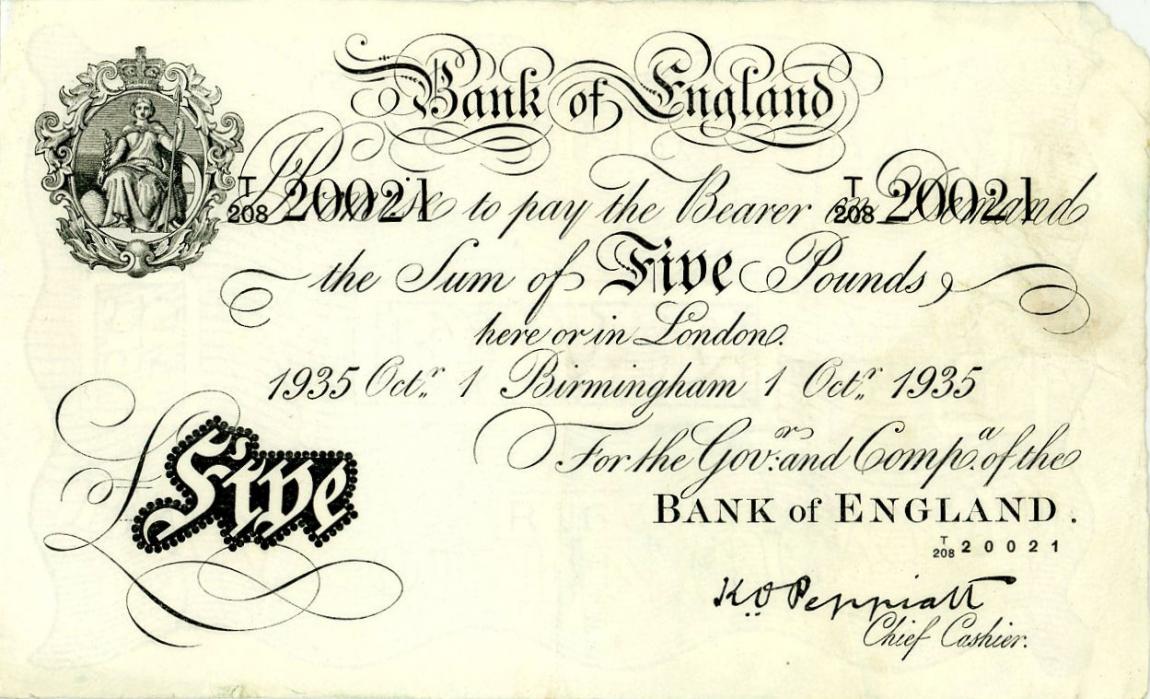 Bank of England
T/208 20021 I Promise to pay the Bearer on Demand T/208 20021
the Sum of Five Pounds
here or in London.
1935 Octr. 1 Birmingham 1 Octr. 1935
For the Govr. and Compa. of the
BANK of ENGLAND.
T/208 20021
£Five
K.O. Peppiatt
Chief Cashier.